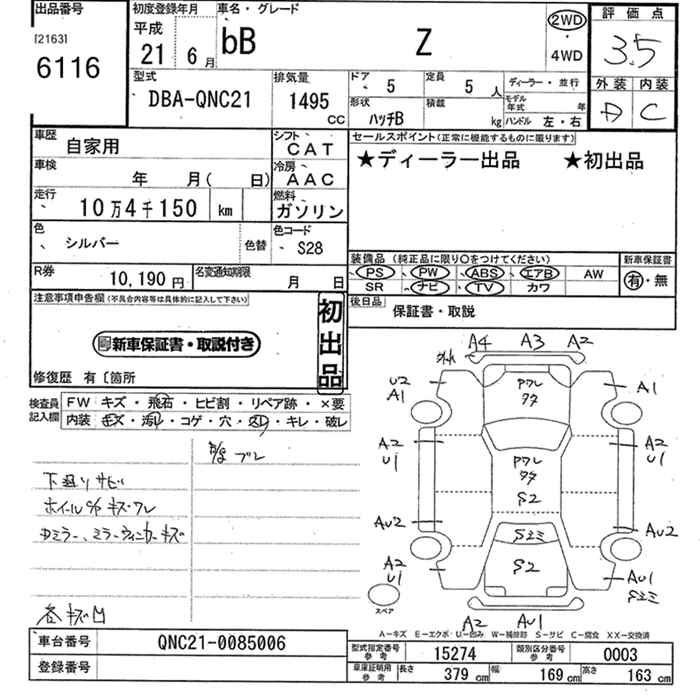 出品番号 初度登録年月 車名・グレード 評価点
[2163] 平成 2WD
6116 21 6月 bB Z 4WD 3.5
型式 排気量 ドア 5 定員 5人 ディーラー・並行 外装 内装
DBA-QNC21 1495 CC 形状 ハッチB 積載 kg モデル年式 年 ハンドル 左・右 D C
車歴 自家用 シフト CAT セールスポイント(正常に機能するものに限ります)
車検 年 月( 日) 冷房 AAC ★ディーラー出品 ★初出品
走行 10万4千150 km 燃料 ガソリン
色 シルバー 色替 色コード S28
装備品(純正品に限り○をつけてください) 新車保証書
PS PW ABS エアB AW 有・無
SR ナビ TV カワ
R券 10,190円 名変通知期限 月 日
後日品 保証書・取説
注意事項申告欄(不具合内容等は具体的に記入して下さい) 初出品
新車保証書・取説付き
修復歴 有〔箇所
検査員記入欄 FW キズ・飛石・ヒビ割・リペア跡・×要
内装 キズ・汚レ・コゲ・穴・凹・キレ・破レ
下廻りサビ
各キズ凹
A4 A3 A2
U2 A1 A1
A2 U1 A2 U1
S2
AU2 AU2
S2
A2 U1 AU1
スペア
A2 AU1
A-キズ E-エクボ U-凹み W-補修跡 S-サビ C-腐食 XX-交換済
車台番号 QNC21-0085006
登録番号
型式指定番号 参考 15274 類別区分番号 参考 0003
車庫証明用 参考 長さ 379cm 幅 169cm 高さ 163cm